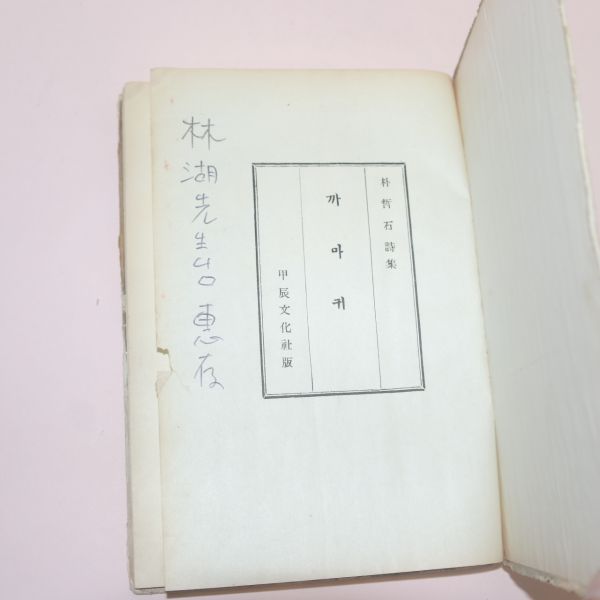 朴哲石詩集
까마귀
甲辰文化社版
林湖先生吿惠存